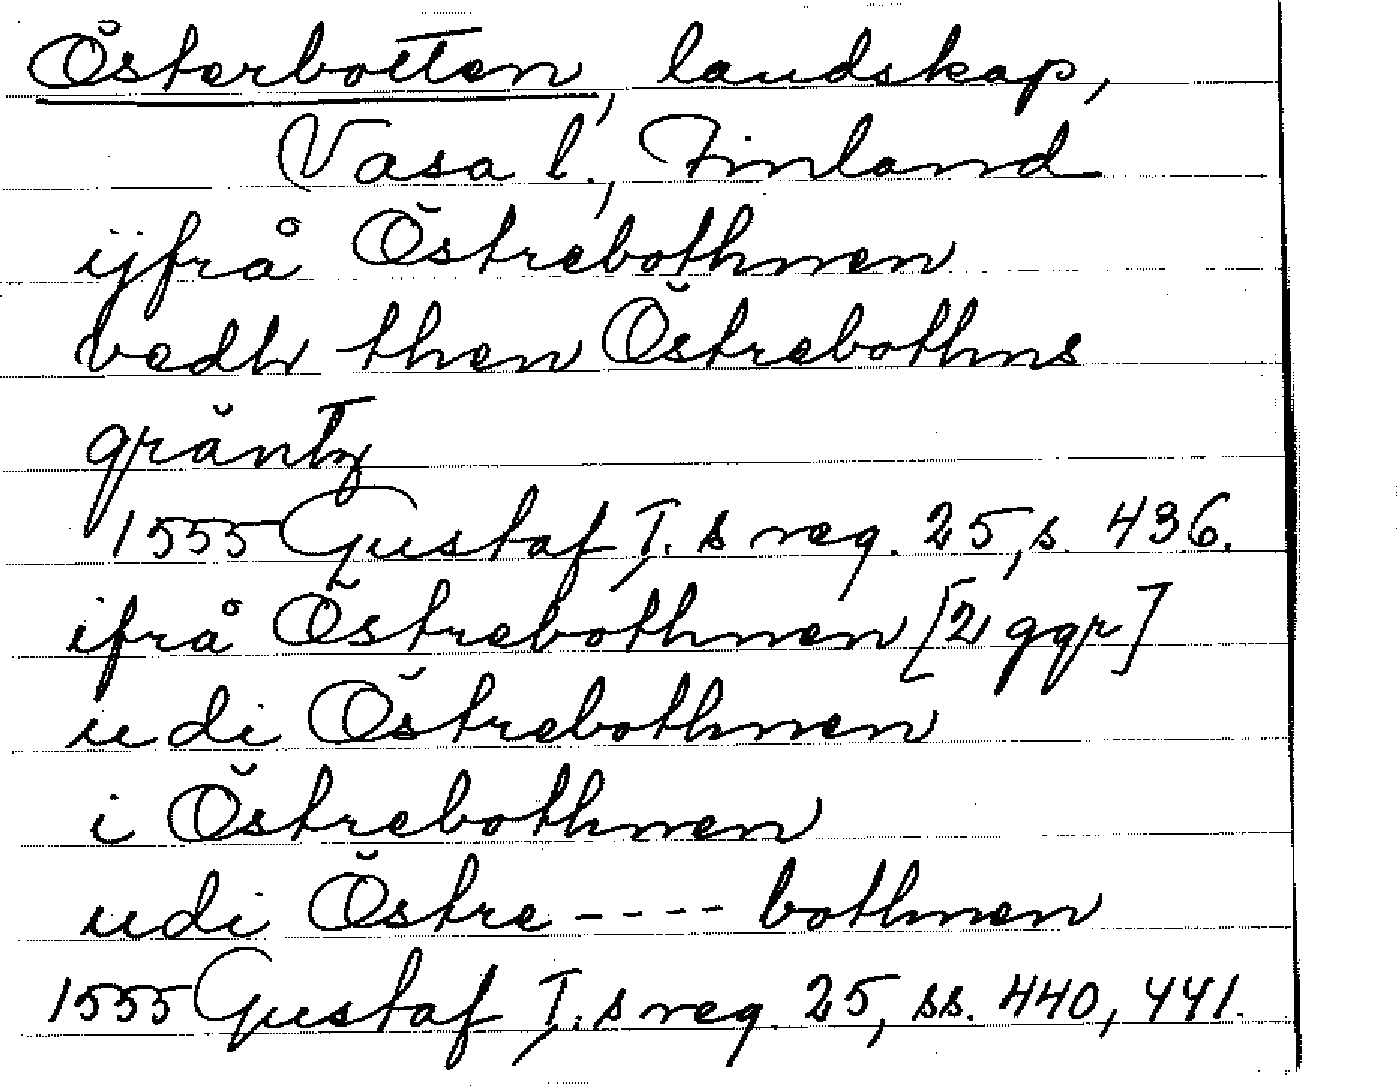 Österbotten, landskap,
Vasa l., Finland
ijfrå Östrebothnen
vedh then Östrebothns
gräntz
1555 Gustaf I.s reg. 25, s. 436.
ifrå Östrebothnen [2 ggr]
udi Östrebothnen
i Östrebothnen
udi Östre---- bothnen
1555 Gustaf I.s reg. 25, ss. 440, 441.